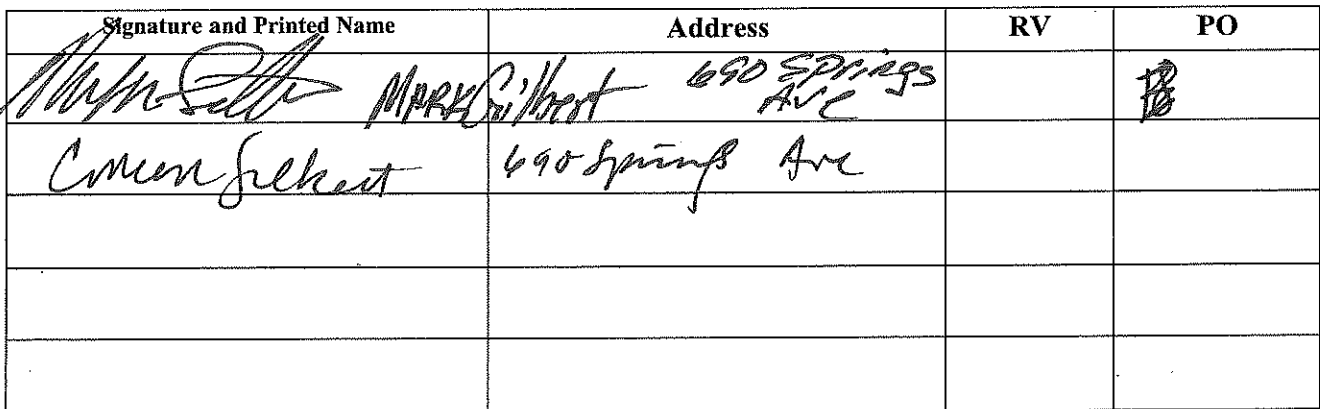 Signature and Printed Name Address RV PO
MARK Gilbert 690 Springs Ave
Gilbert 690 Springs Ave